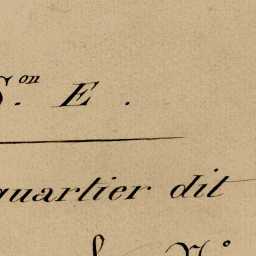 S.on E.
quartier dit
N.o